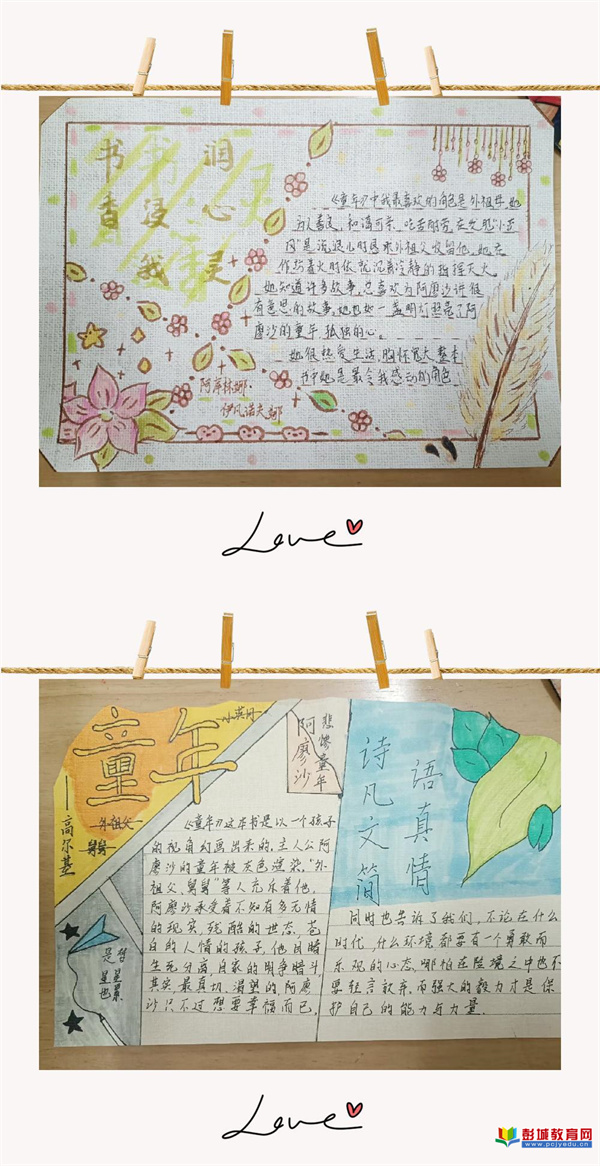 书香浸我心灵
润
《童年》中我最喜欢的角色是外祖母,她
为人善良,和蔼可亲、吃苦耐劳,在发现"小茨
冈"是
外祖父收留他,她在
作坊着火时依就沉着冷静的指挥灭火
她知道许多故事,总喜欢为阿廖沙讲很
有意思的故事,她也如一盏明灯照亮了阿
廖沙的童年 孤独的心。
她很热爱生活,胸怀宽大 整本
书中她是最令我感动的角色
阿库林娜·
伊凡诺夫娜
Love
童年
小茨冈
——高尔基
外祖父
舅舅
阿廖沙
悲惨童年
《童年》这本书是以一个孩子
的视角勾画出来的,主人公阿
廖沙的童年被灰色渲染,"外
祖父、舅舅"等人充斥着他,
阿廖沙承受着不知有多无情
的现实,残酷的世态,苍
白的人情的孩子,他目睹
生死分离,自家的明争暗斗,
其实,最真切、渴望的,阿廖
沙只不过想要幸福而已,
诗凡文简
语真情
同时也告诉了我们,不论在什么
时代,什么环境都要有一个勇敢而
乐观的心态,哪怕在险境之中也不
要轻言放弃,而强大的毅力才是保
护自己的能力与力量.
Love
彭城教育网
www.pcjyedu.cn